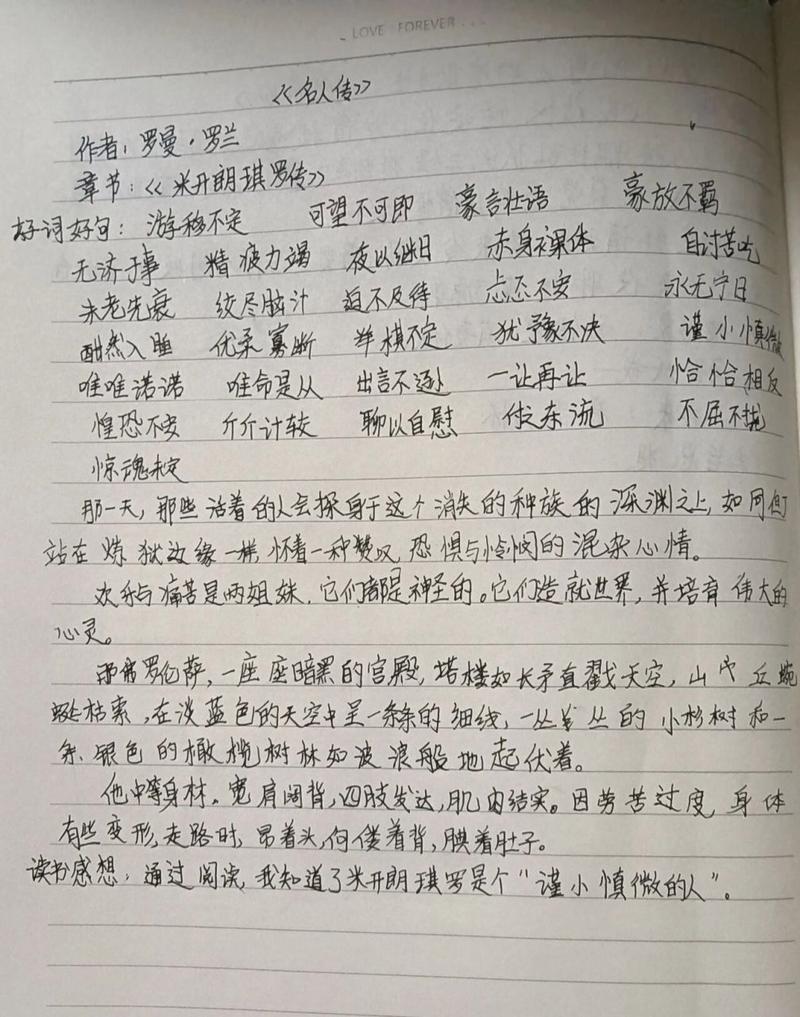 LOVE FOREVER...
《名人传》
作者：罗曼·罗兰
章节：《米开朗琪罗传》
好词好句：游移不定 可望不可即 豪言壮语 豪放不羁
无济于事 精疲力竭 夜以继日 赤身裸体 自讨苦吃
未老先衰 绞尽脑汁 迫不及待 忐忑不安 永无宁日
酣然入睡 优柔寡断 举棋不定 犹豫不决 谨小慎微
唯唯诺诺 唯命是从 出言不逊 一让再让 恰恰相反
惶恐不安 斤斤计较 聊以自慰 付之东流 不屈不挠
惊魂未定
那一天，那些活着的人会探身于这个消失的种族的深渊之上，如同他们
站在炼狱边缘一样，怀着一种赞叹、恐惧与怜悯的混杂心情。
欢乐与痛苦是两姐妹，它们都是神圣的。它们造就世界，并培育伟大的
心灵。
那佛罗伦萨，一座座暗黑的宫殿，塔楼如长矛直戳天空，山丘蜿
蜒枯索，在淡蓝色的天空中呈一条条的细线，一丛丛的小杉树和一
条银色的橄榄树林如波浪般地起伏着。
他中等身材，宽肩阔背，四肢发达，肌肉结实。因劳苦过度，身体
有些变形，走路时，昂着头，佝偻着背，腆着肚子。
读书感想：通过阅读，我知道了米开朗琪罗是个“谨小慎微的人”。